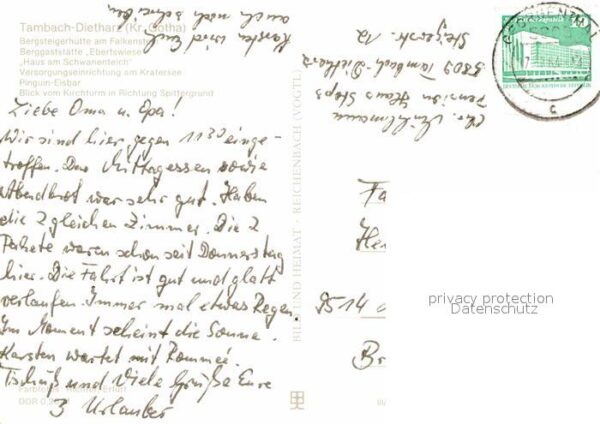 Tambach-Dietharz (Kr. Gotha)
Bergsteigerhütte am Falkenstein
Berggaststätte „Ebertswiese
„Haus am Schwanenteich"
Versorgungseinrichtung am Kratersee
Pinguin-Eisbar
Blick vom Kirchturm in Richtung Spittergrund
Karsten wird Euch
auch noch schreiben
Liebe Oma u. Opa!
Wir sind hier gegen 11 30 einge-
troffen. Das Mittagessen sowie
Abendbrot war sehr gut. Haben
die 2 gleichen Zimmer. Die 2
Pakete waren schon seit Donnerstag
hier. Die Fahrt ist gut und glatt
verlaufen. Immer mal etwas Regen.
Im Moment scheint die Sonne.
Karsten wartet mit Rommeé.
Tschüß und Viele Grüße Eure
3 Urlauber
DDR
BILD UND HEIMAT · REICHENBACH (VOGTL)
Chr.
Pension Haus
5809 Tambach-Dietharz
12
DEUTSCHE DEMOKRATISCHE REPUBLIK
Fa
He
9514
B
privacy protection
Datenschutz